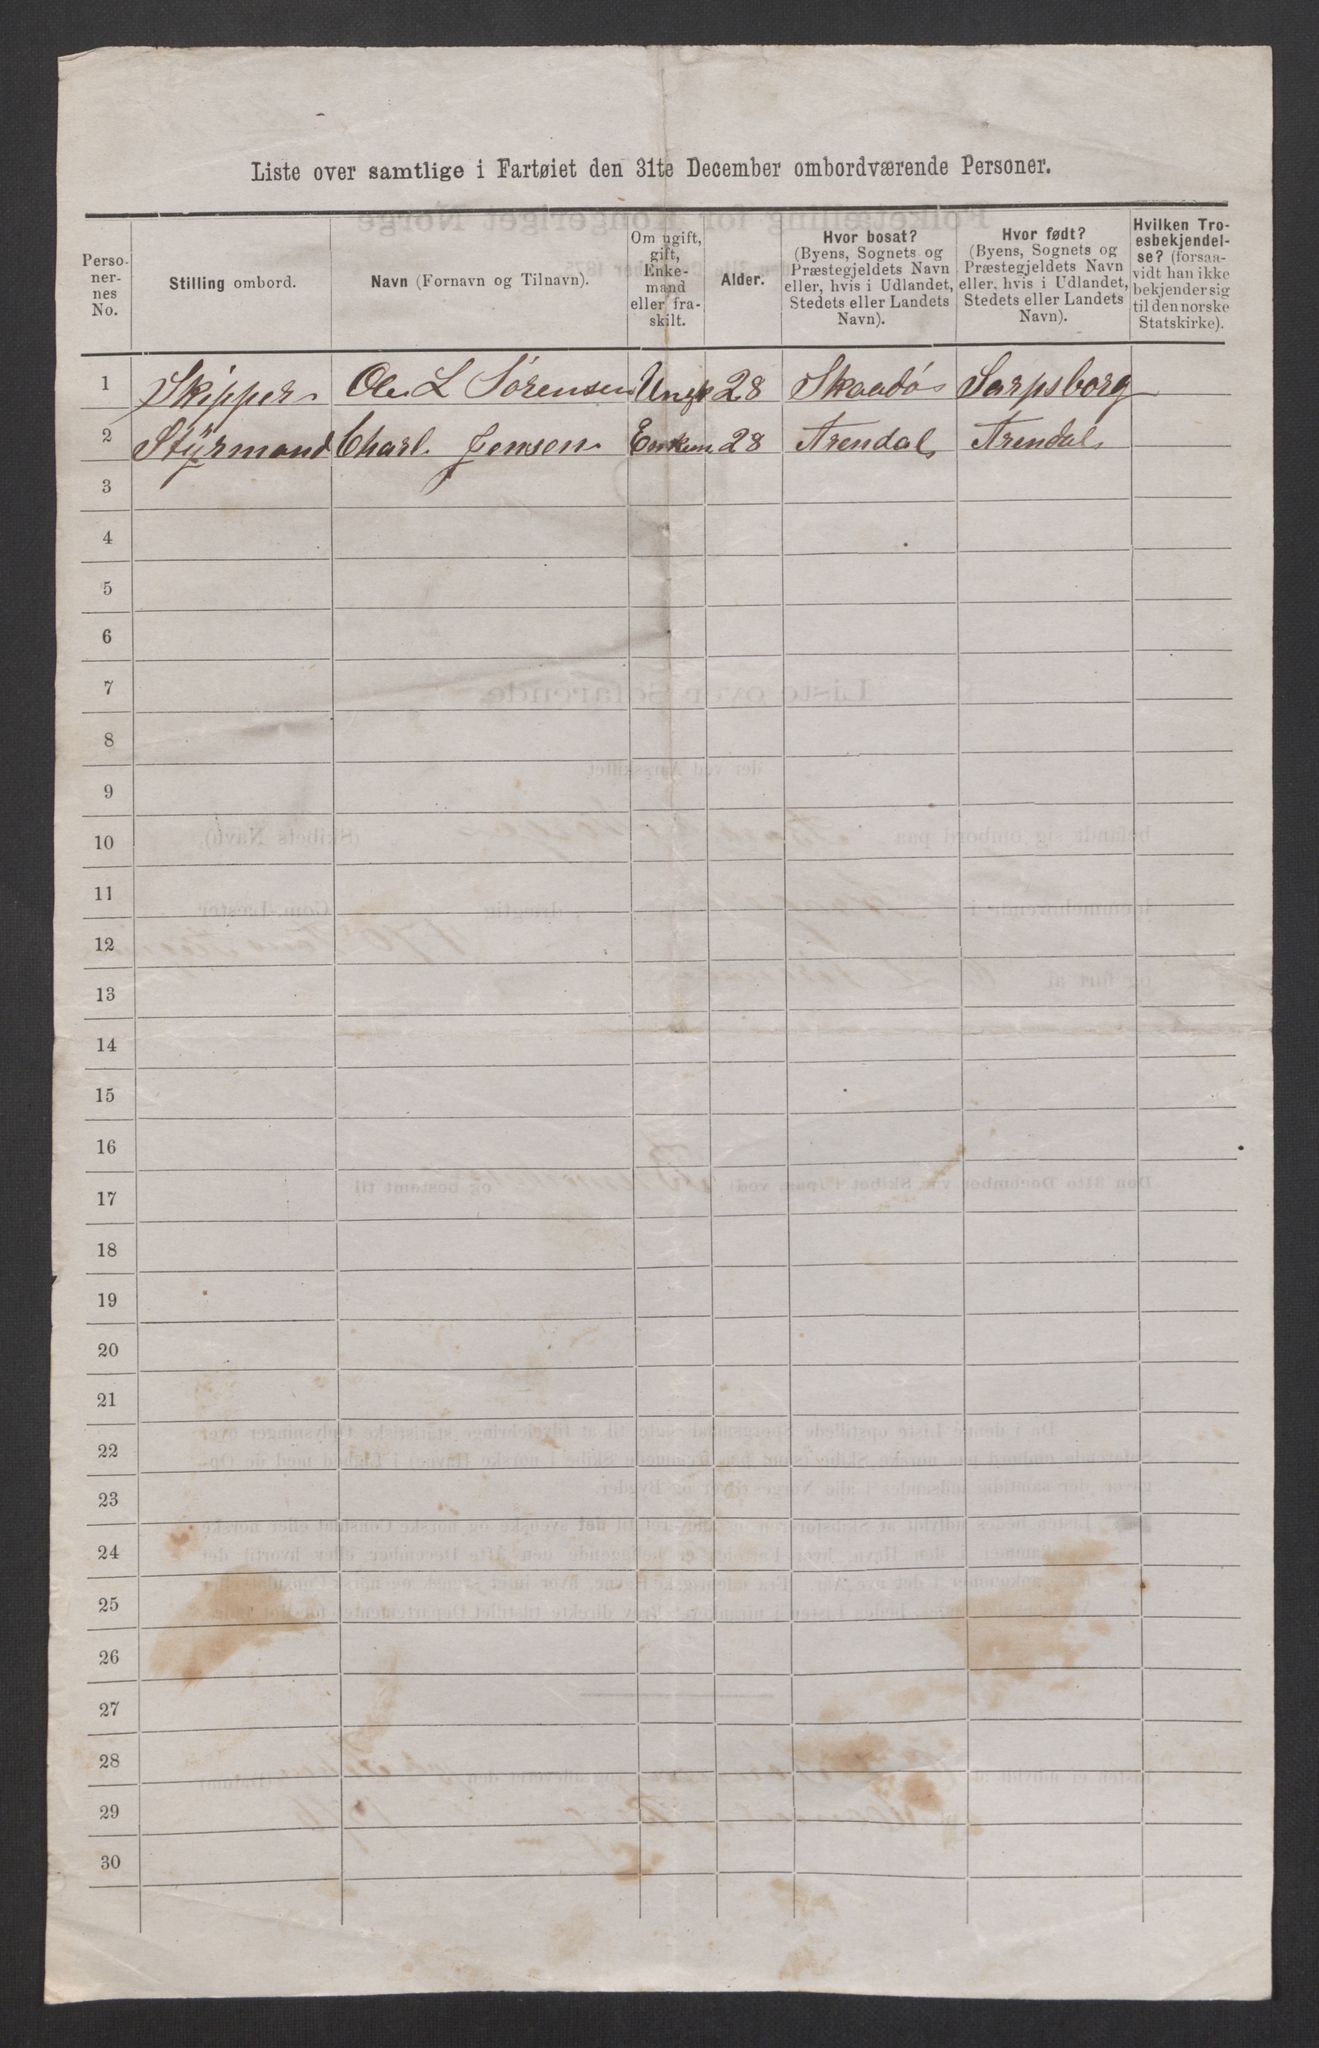 Liste over samtlige i Fartøiet den 31te December ombordværende Personer.
Perso-
ner-
nes
No.
Stilling ombord.
Navn (Fornavn og Tilnavn).
Om ugift,
gift,
Enke-
mand
eller fra-
skilt.
Alder.
Hvor bosat?
(Byens, Sognets og
Præstegjeldets Navn
eller, hvis i Udlandet,
Stedets eller Landets
Navn).
Hvor født?
(Byens, Sognets og
Præstegjeldets Navn
eller, hvis i Udlandet,
Stedets eller Landets
Navn).
Hvilken Tro-
esbekjendel-
se? (forsaa-
vidt han ikke
bekjender sig
til den norske
Statskirke).
1 Skipper Ole L Sörensen Ungk 28 Skaadö Sarpsborg
2 Styrmand Charl. Jensen Enkem 28 Arendal Arendal
3
4
5
6
7
8
9
10
11
12
13
14
15
16
17
18
19
20
21
22
23
24
25
26
27
28
29
30